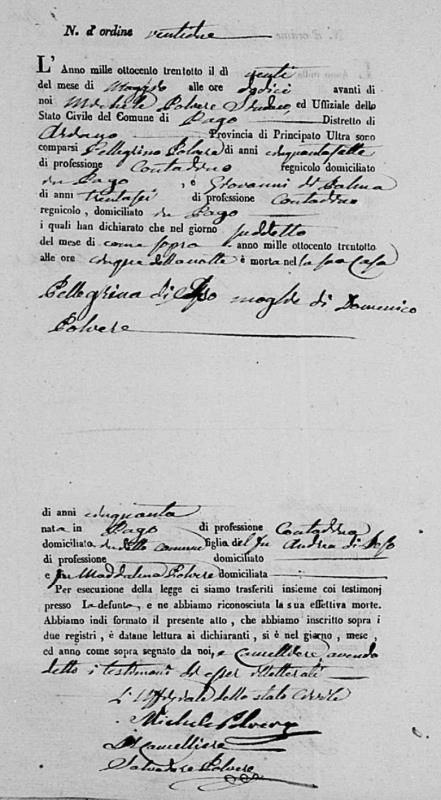 N. d'ordine ventidue
L'Anno mille ottocento trentotto il dì venti
del mese di Maggio alle ore dodici avanti di
noi Michele Polvere Sindaco, ed Uffiziale dello
Stato Civile del Comune di Pago Distretto di
Ariano Provincia di Principato Ultra sono
comparsi Pellegrino Polvere di anni cinquantasette
di professione Contadino regnicolo domiciliato
in Pago, e Giovanni di Palma
di anni trentasei di professione Contadino
regnicolo, domiciliato in Pago
i quali han dichiarato che nel giorno suddetto
del mese di come sopra anno mille ottocento trentotto
alle ore cinque della notte è morta nel la sua Casa
Pellegrina di moglie di Domenico
Polvere
di anni cinquanta
nata in Pago di professione Contadina
domiciliata in detto comune figlia del fu Andrea di
di professione domiciliato
e fu Maddalena Polvere domiciliata
Per esecuzione della legge ci siamo trasferiti insieme coi testimonj
presso La defunta, e ne abbiamo riconosciuta la sua effettiva morte.
Abbiamo indi formato il presente atto, che abbiamo inscritto sopra i
due registri, è datane lettura ai dichiaranti, si è nel giorno, mese,
ed anno come sopra segnato da noi, e Cancelliere avendo
detto i testimoni di esser illetterati
L'Uffiziale dello stato Civile
Michele Polvere
Il Cancelliere
Salvadore Polvere